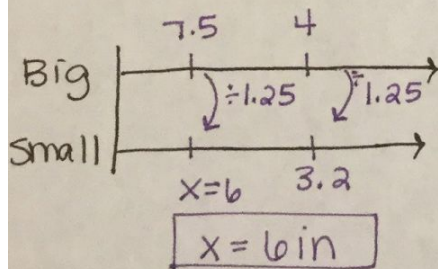 7.5 4
Big
÷1.25 ÷1.25
Small
x=6 3.2
x = 6in